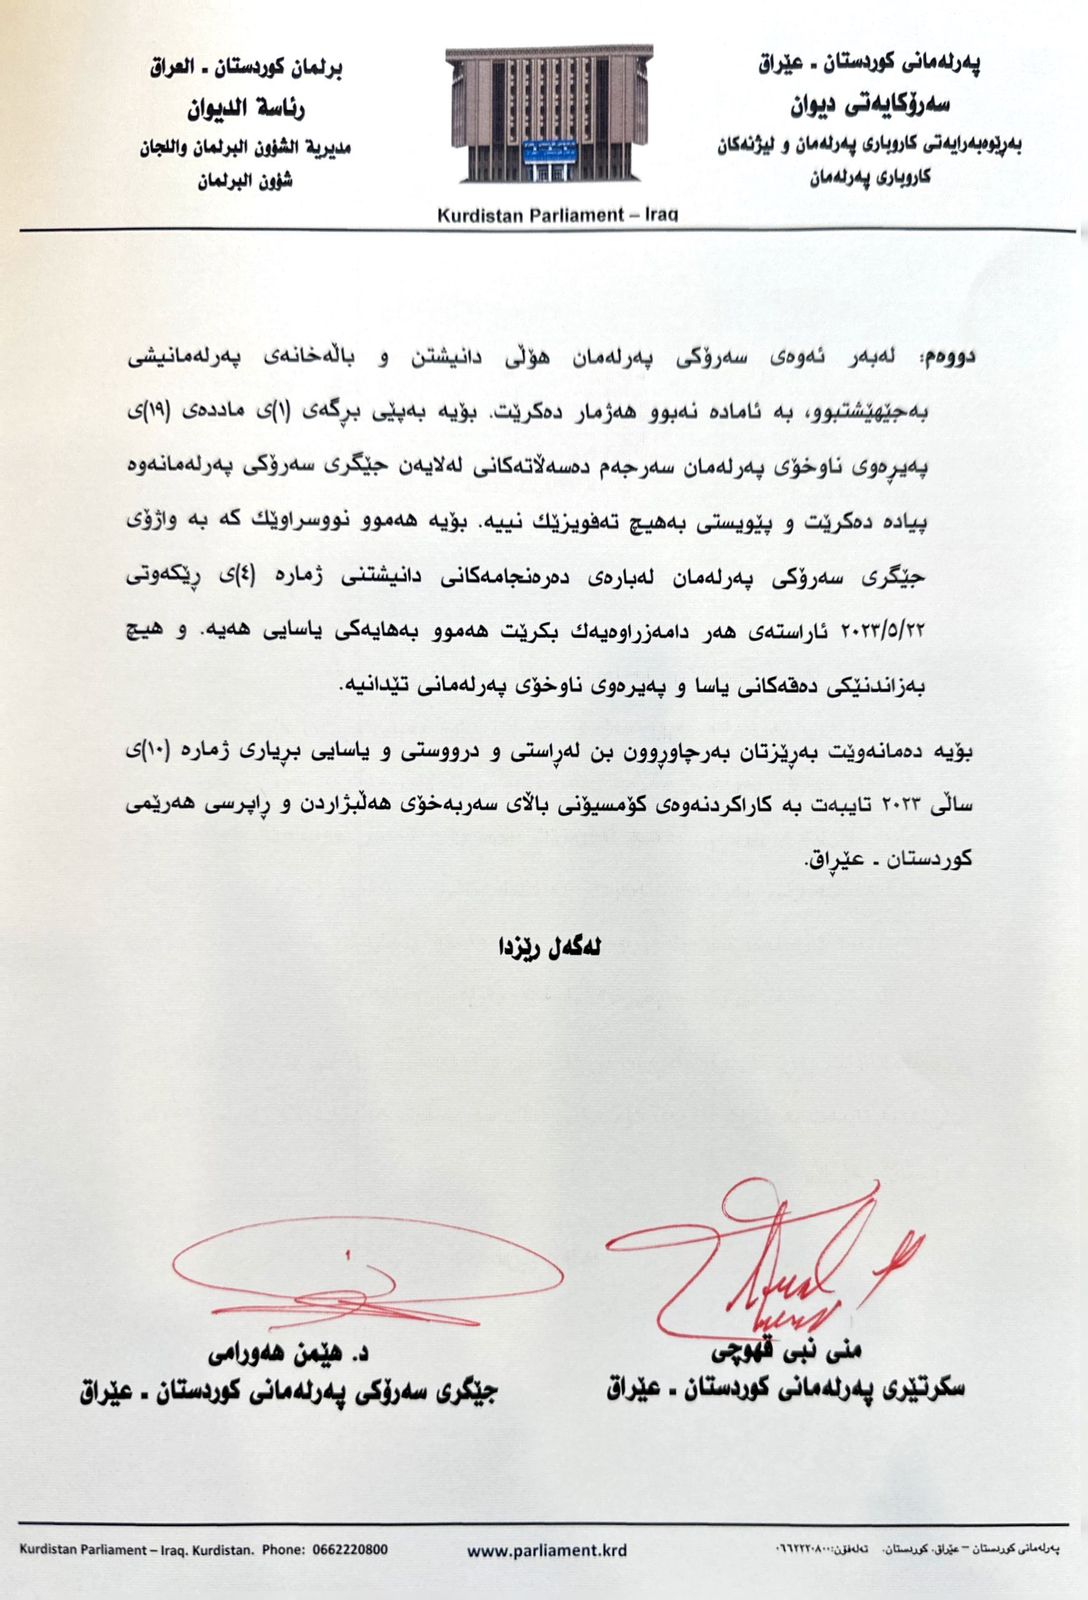 پەرلەمانی کوردستان - عێراق
سەرۆکایەتی دیوان
بەڕێوەبەرایەتی کاروباری پەرلەمان و لیژنەکان
کاروباری پەرلەمان
برلمان كوردستان - العراق
رئاسة الديوان
مديرية الشؤون البرلمان واللجان
شؤون البرلمان
Kurdistan Parliament – Iraq
دووەم: لەبەر ئەوەی سەرۆکی پەرلەمان هۆڵی دانیشتن و باڵەخانەی پەرلەمانیشی
بەجێهێشتبوو، بە ئامادە نەبوو هەژمار دەکرێت. بۆیە بەپێی بڕگەی (١)ی ماددەی (١٩)ی
پەیڕەوی ناوخۆی پەرلەمان سەرجەم دەسەڵاتەکانی لەلایەن جێگری سەرۆکی پەرلەمانەوە
پیادە دەکرێت و پێویستی بەهیچ تەفویزێك نییە. بۆیە هەموو نووسراوێك کە بە واژۆی
جێگری سەرۆکی پەرلەمان لەبارەی دەرەنجامەکانی دانیشتنی ژمارە (٤)ی ڕێکەوتی
٢٠٢٣/٥/٢٢ ئاراستەی هەر دامەزراوەیەك بکرێت هەموو بەهایەکی یاسایی هەیە. و هیچ
بەزاندنێکی دەقەکانی یاسا و پەیرەوی ناوخۆی پەرلەمانی تێدانیە.
بۆیە دەمانەوێت بەڕێزتان بەرچاوڕوون بن لەڕاستی و درووستی و یاسایی بڕیاری ژمارە (١٠)ی
ساڵی ٢٠٢٣ تایبەت بە کاراکردنەوەی کۆمسیۆنی باڵای سەربەخۆی هەڵبژاردن و ڕاپرسی هەرێمی
کوردستان - عێڕاق.
لەگەل رێزدا
منی نبی قهوچی
سکرتێری پەرلەمانی کوردستان - عێراق
د. هێمن هەورامی
جێگری سەرۆکی پەرلەمانی کوردستان - عێراق
Kurdistan Parliament – Iraq. Kurdistan. Phone: 0662220800
www.parliament.krd
پەرلەمانی کوردستان – عێراق. کوردستان. تەلەفۆن:٠٦٦٢٢٢٠٨٠٠